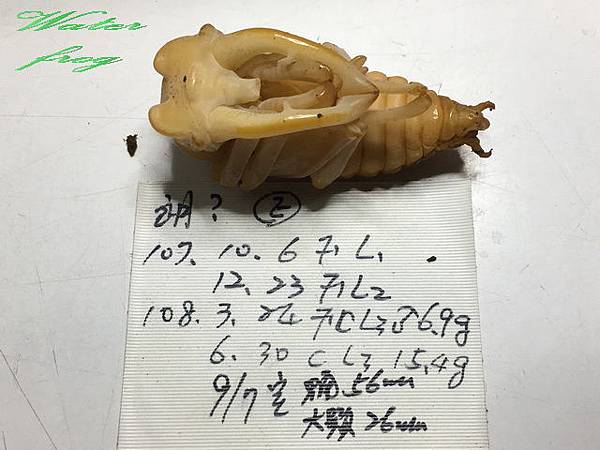 Water
frog
? ②
107. 10. 6 L1
12. 23 L2
108. 3. 24 CL3 ♂6.9g
6. 30 C L3 15.4g
9/7 室 56mm
大顎 26mm